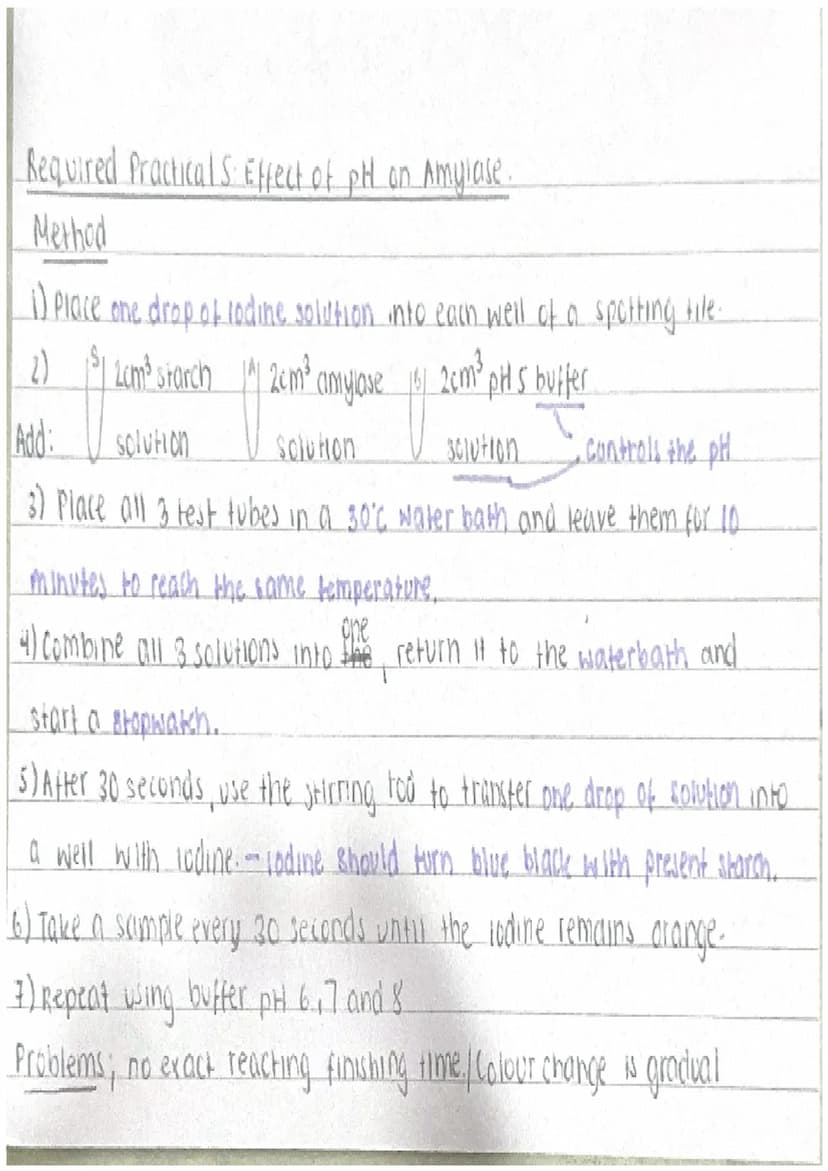 Required Practical 5: Effect of pH on Amylase.
Method
1) Place one drop of iodine solution into each well of a spotting tile.
2) S 2cm³ starch A 2cm³ amylase B 2cm³ pH 5 buffer
Add: solution solution solution controls the pH
3) Place all 3 test tubes in a 30°C water bath and leave them for 10
minutes to reach the same temperature.
one
4) Combine all 3 solutions into the, return it to the waterbath and
start a stopwatch.
5) After 30 seconds, use the stirring rod to transfer one drop of solution into
a well with iodine. - iodine should turn blue black with present starch.
6) Take a sample every 30 seconds until the iodine remains orange.
7) Repeat using buffer pH 6, 7 and 8
Problems; no exact reacting finishing time. / Colour change is gradual